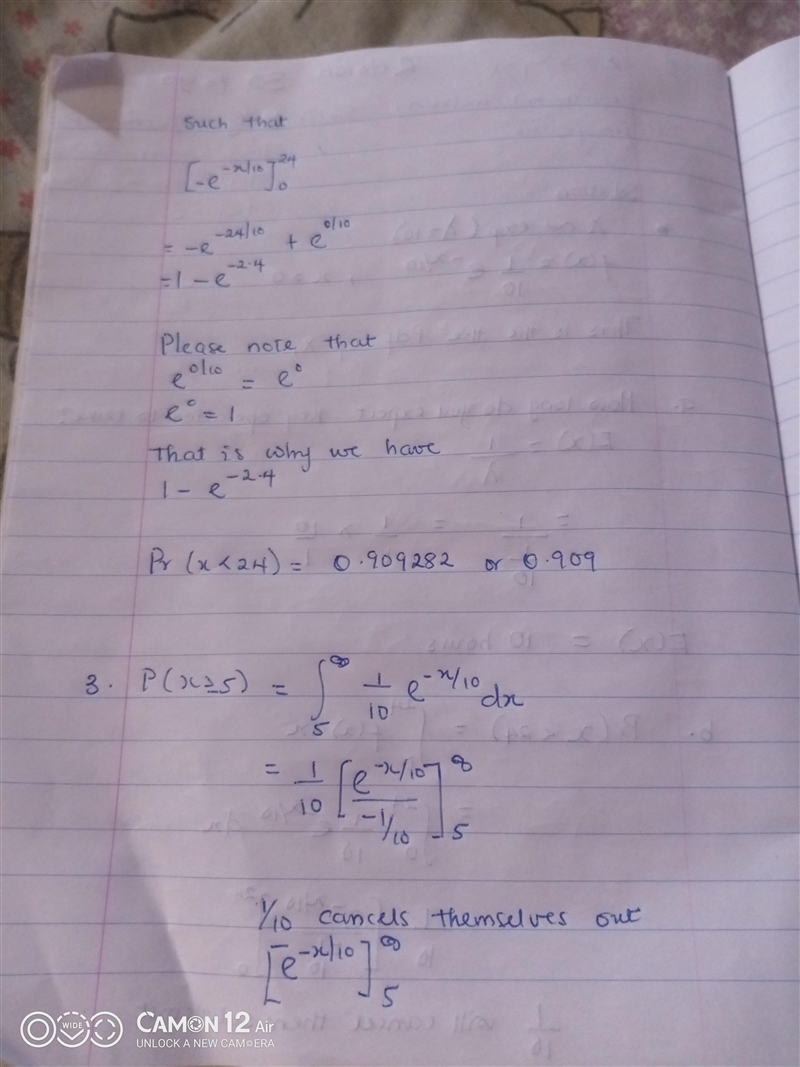 Such that
[-e^-x/10]_0^24
= -e^-24/10 + e^0/10
= 1 - e^-2.4
Please note that
e^0/10 = e^0
e^0 = 1
That is why we have
1 - e^-2.4
Pr (x < 24) = 0.909282 or 0.909
3. P(x ≥ 5) = ∫_5^∞ 1/10 e^-x/10 dx
= 1/10 [e^-x/10 / -1/10]_5^∞
1/10 cancels themselves out
[-e^-x/10]_5^∞
WIDE CAMON 12 Air
UNLOCK A NEW CAMERA